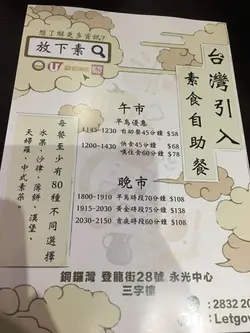 想了解更多資訊?
放下素
台灣引入
素食自助餐
午市
早鳥優惠
1145-1230 自助餐45分鐘 $58
1200-1430 快食45分鐘 $68
嘆住食60分鐘 $78
每餐至少有80種不同選擇
水果、沙律、薄餅、漢堡、
天婦羅、中式素菜。
晚市
1800-1910 早鳥時段70分鐘 $108
1915-2030 黃金時段75分鐘 $138
2030-2150 宵夜時段60分鐘 $108
銅鑼灣 登龍街28號 永光中心
三字樓
: 2832 20
: Letgov